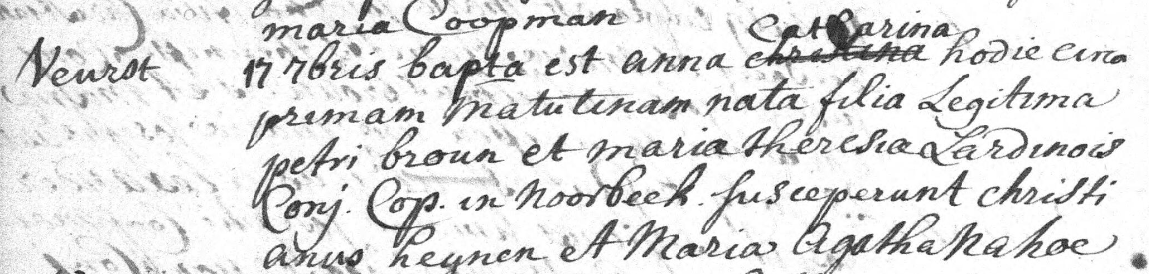 maria Coopman
Catharina
Veurst 17 7bris bapta est anna christina hodie circa
primam matutinam nata filia Legitima
petri broun et maria theresia Lardinois
Conj. Cop. in Noorbeek. susceperunt christi
anus heynen et Maria Agatha Nahoe